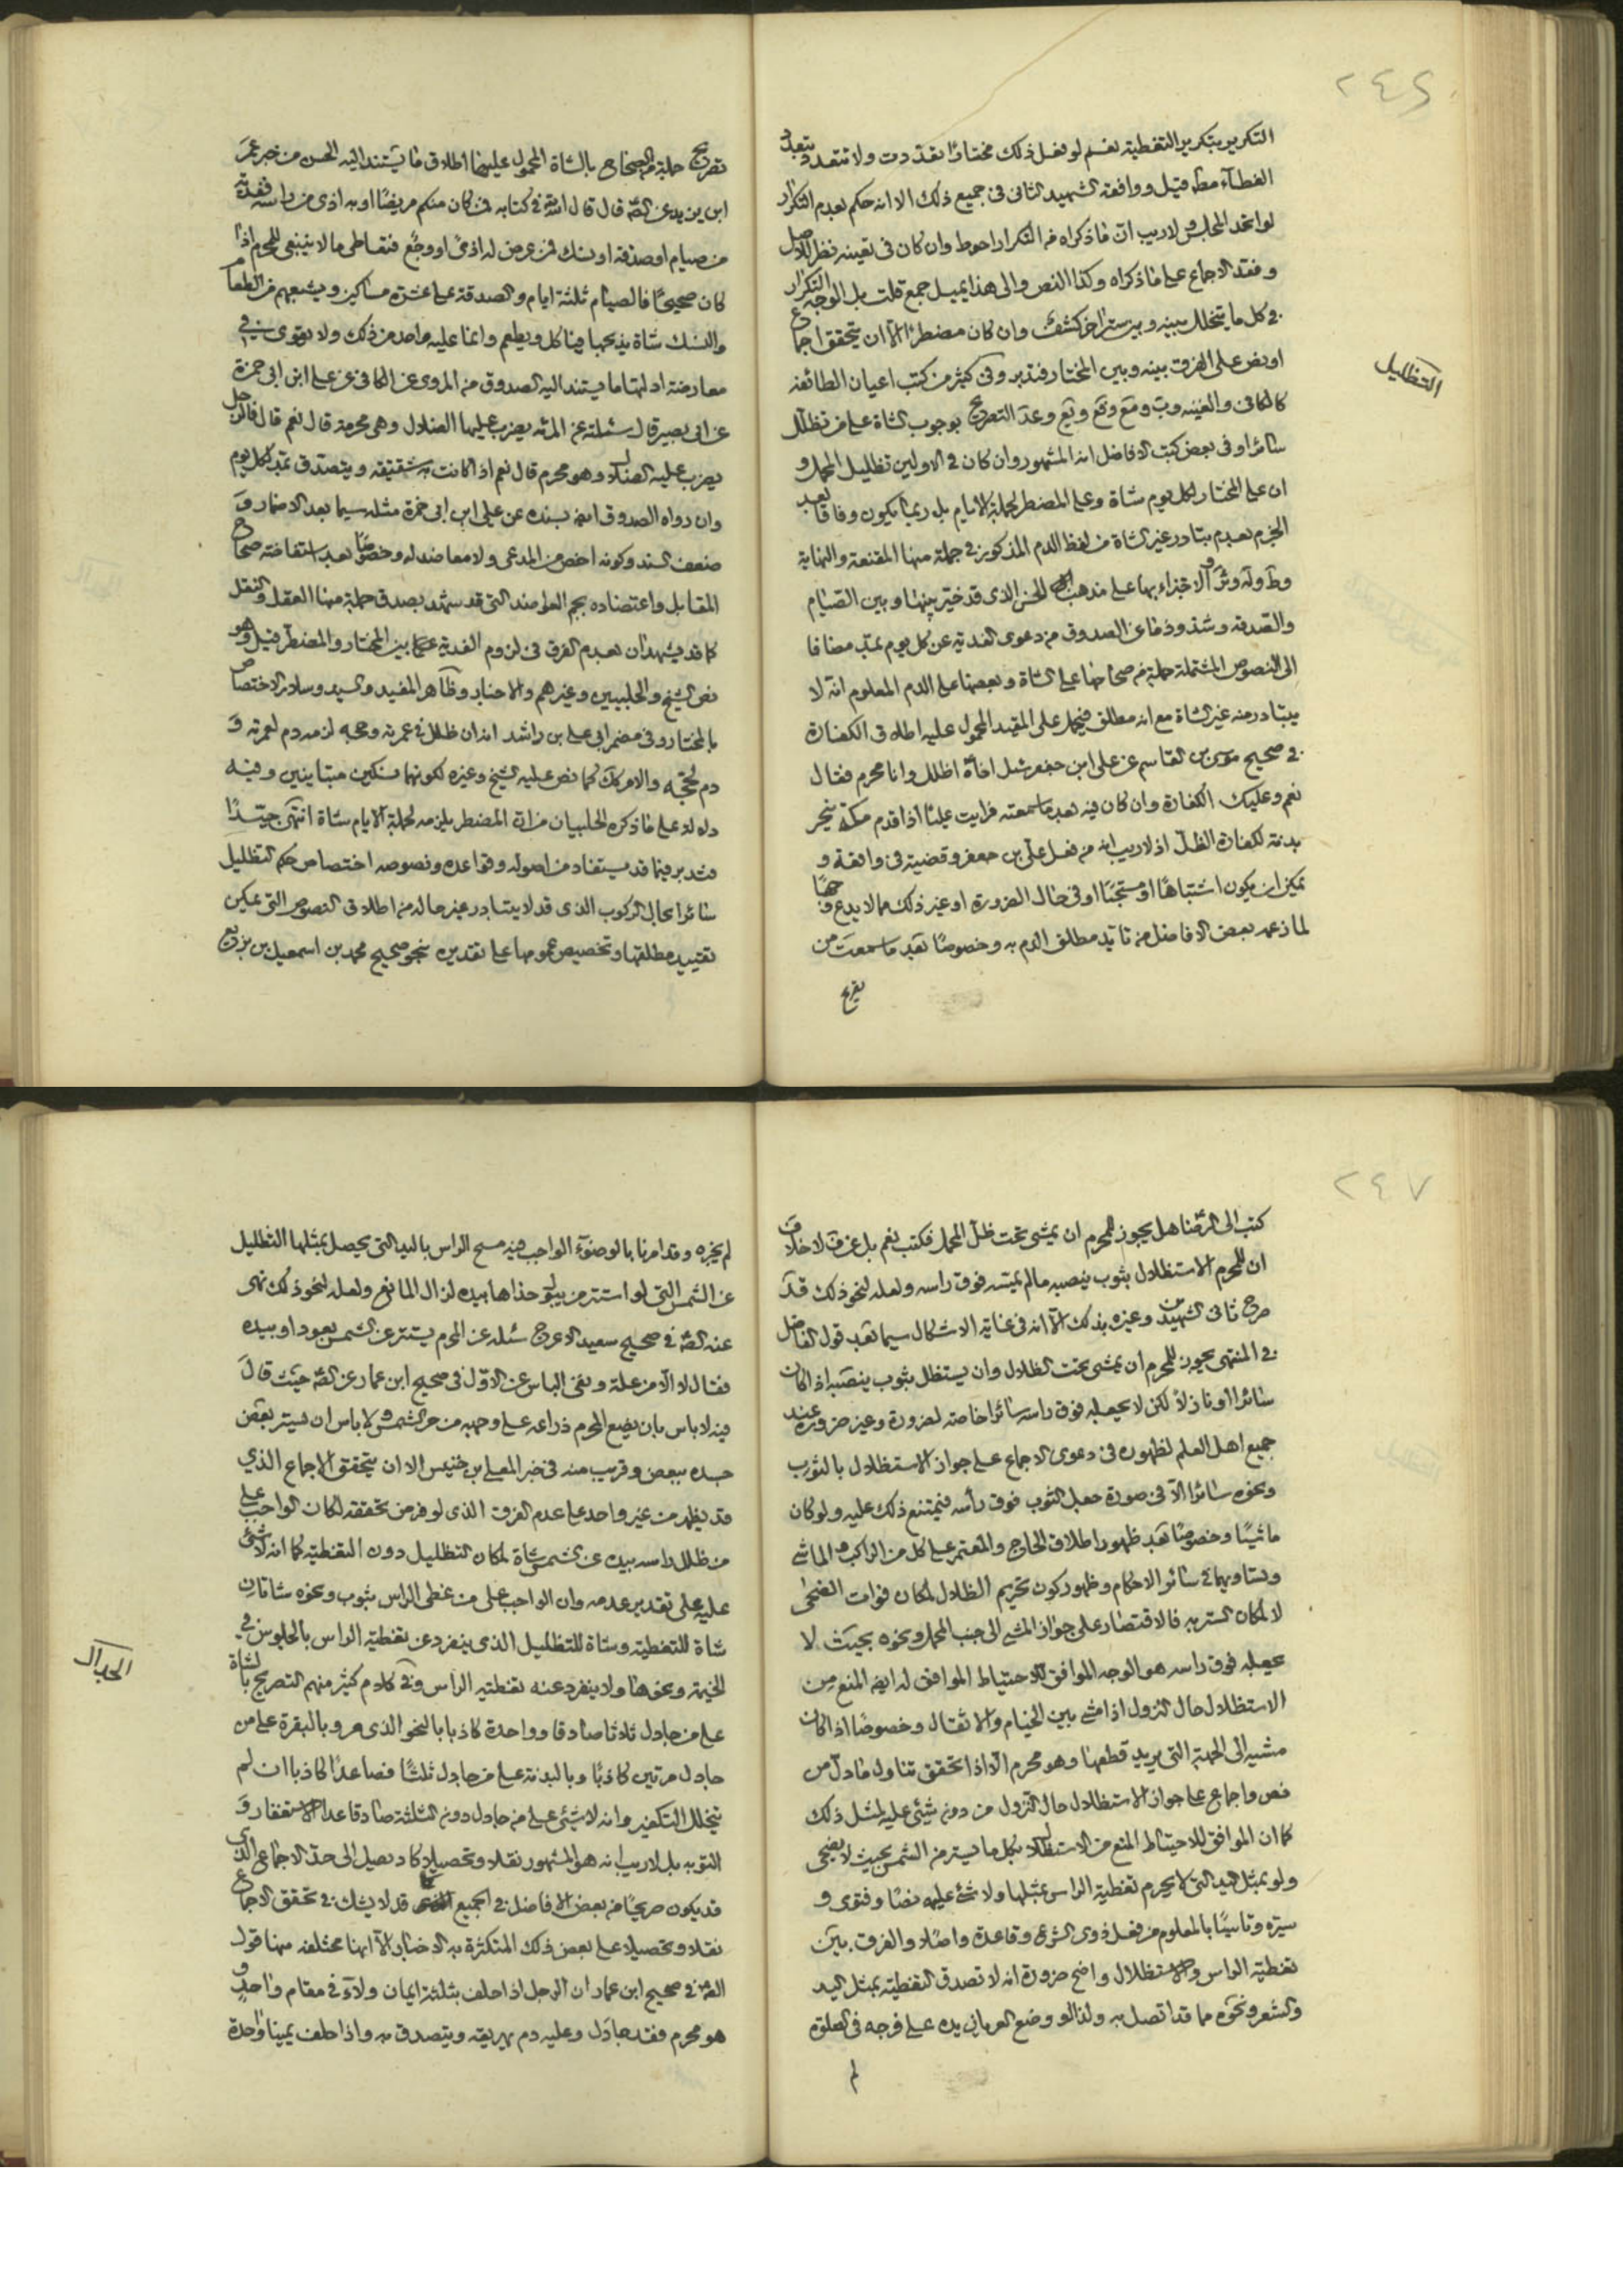 ٢٤٦
التكرير بتكرير التغطية نعم لو فعل ذلك مختارا تعددت ولا تتعدد بتعدد
الغطاء مطلقا قيل ووافقه الشهيد الثاني في جميع ذلك الا انه حكم بعدم التكرار
لو اتحد المجلس ولا ريب ان ما ذكراه من التكرار احوط وان كان في تعينه نظر للاصل
وفقد الاجماع على ما ذكراه وكذا النص والى هذا يميل جمع قلت بل الوجه التكرار
في كل ما يتخلل بينه وبين ستر اخر كشف وان كان مضطرا الا ان يتحقق اجماع
او نص على الفرق بينه وبين المختار فتدبر وفي كثير من كتب اعيان الطائفة
التظليل
كالكافي والغنيه ويب ومع وقع ويع وعد التصريح بوجوب الشاة على من تظلل
سائرا وفي بعض كتب الافاضل انه المشهور وان كان في الاولين تظليل المحمل و
ان على المختار لكل يوم شاة وعلى المضطر لجملة الايام بل ربما يكون وفاقا بعد
الجزم بعدم تبادر غير الشاة من لفظ الدم المذكور في جملة منها المقنعة والنهاية
وط وله وئر والاجتزاء بها على مذهب الحسن الذي قد خير بينها وبين الصيام
والصدقة وشذوذ ما عن الصدوق من دعوى الفدية عن كل يوم بمد مضافا
الى النصوص المشتملة جملة من صحاحها على الشاة وبعضها على الدم المعلوم انه لا
يتبادر منه غير الشاة مع انه مطلق فيحمل على المقيد المحمول عليه اطلاق الكفارة
في صحيح موسى بن القاسم عن على ابن جعفر سئل اخاه اظلل وانا محرم فقال
نعم وعليك الكفارة وان كان فيه بعد ما سمعته فرايت عليا اذا قدم مكة ينحر
بدنة لكفارة الظل اذ لا ريب انه من فعل علي بن جعفر وقضية في واقعة و
يمكن ان يكون اشتباها او مستحبا او في حال الضرورة او غير ذلك مما لا يدع وجها
لما زعمه بعض الافاضل من تاييد مطلق الدم به وخصوصا بعد ما سمعت من
تصريح
تصريح جملة من الصحاح بالشاة المحمول عليها اطلاق ما يستند اليه الحسن من خبر عمر
ابن يزيد عن الصه قال قال الله في كتابه فمن كان منكم مريضا او به اذى من راسه ففدية
من صيام او صدقة او نسك فمن عرض له اذى او وجع فتعاطى ما لا ينبغي للمحرم اذا
كان صحيحا فالصيام ثلثة ايام والصدقة على عشرة مساكين ويشبعهم من الطعام
والنسك شاة يذبحها فياكل ويطعم وانما عليه واحد من ذلك ولا يقوى شيئ في
معارضة ادلتها ما يستند اليه الصدوق من المروى عن الكافي عن على ابن ابى حمزة
عن ابى بصير قال سئلته عن المرئه يضرب عليها الضلال وهي محرمة قال نعم قال فالرجل
يضرب عليه الضلال وهو محرم قال نعم اذا كانت به شقيقة ويتصدق بمد لكل يوم
وان رواه الصدوق ايضه بسنده عن على ابن ابى حمزة مثله سيما بعد الاضمار و
ضعف السند وكونه اخص من المدعى ولا معاضد له وخصوصا بعد استفاضة صحاح
المقابل واعتضاده بجم العواضد التى قد سشهد بصدق جملة منها العقل والنقل
كما قد يشهدان بعدم الفرق في لزوم الفدية عما بين المختار والمضطر قيل وهو
نص الشيخ والحلبيين وغيرهم والاخبار وظاهر المفيد والسيد وسلار الاختصاص
بالمختار وفي مضمر ابى على بن راشد انه ان ظلل في عمرته وحجه لزمه دم لعمرته و
دم لحجه والامر كك كما نص عليه الشيخ وغيره لكونهما نسكين متباينين وفيه
دلالة على ما ذكره الحلبيان من ان المضطر يلزمه لجملة الايام شاة انتهى جيدا
فتدبر فيما قد يستفاد من اصوله وقواعده ونصوصه اختصاص حكم التظليل
سائرا بحال الركوب الذي قد لا يتبادر غير حاله من اطلاق النصوص التي يمكن
تقييد مطلقها وتخصيص عمومها على تقديره بنحو صحيح محمد بن اسمعيل بن بزيع
٢٤٧
كتب الى الرضا هل يجوز للمحرم ان يمشى تحت ظل المحمل فكتب نعم بل عن ف لا خلاف
ان للمحرم الاستظلال بثوب ينصبه مالم يمسه فوق راسه ولعله لنحو ذلك قد
صرح ثانى الشهيدين وغيره بذلك الا انه في غاية الاشكال سيما بعد قول الفاضل
في المنتهى يجوز للمحرم ان يمشى تحت الظلال وان يستظل بثوب ينصبه اذا كان
سائرا او نازلا لكن لا يجعله فوق راسه سائرا خاصة لضرورة وغير ضرورة عند
جميع اهل العلم لظهوره في دعوى الاجماع على جواز الاستظلال بالثوب
ونحوه سائرا الا في صورة جعل الثوب فوق رأسه فيمتنع ذلك عليه ولو كان
ماشيا وخصوصا بعد ظهور اطلاق الحاج والمعتمر على كل من الراكب والماشي
وتساويهما في سائر الاحكام وظهور كون تحريم الظلال لمكان فوات الضحى
لا لمكان الستر به فالاقتصار على جواز المشي الى جنب المحمل ونحوه بحيث لا
يجعله فوق راسه هو الوجه الموافق للاحتياط الموافق له ايضه المنع من
الاستظلال حال النزول اذا مشى بين الخيام والاثقال وخصوصا اذا كان
مشيه الى الجهة التي يريد قطعها وهو محرم الا اذا تحقق تناول ما دل من
نص واجماع على جواز الاستظلال حال النزول من دون شيئ عليه لمثل ذلك
كما ان الموافق للاحتياط المنع من الاستظلال بكل ما يستر من الشمس بحيث لا يضحى
ولو بمثل اليد التي لا يحرم تغطية الراس بمثلها ولا شئ عليه نصا وفتوى و
سيرة وتاسيا بالمعلوم من فعل ذوى الشرع وقاعدة واصلا والفرق بين
تغطية الراس والاستظلال واضح ضرورة انه لا تصدق التغطية بمثل اليد
والشعر ونحوه مما قد اتصل به ولذا لو وضع العريان يده على فرجه في الصلوة
لم
لم يجزه وقد امرنا بالوضوء الواجب فيه مسح الراس باليد التي يحصل بمثلها التظليل
عن الشمس التى لو استتر من يتوخذاها بيده لزال المانع ولعله لنحو ذلك نهى
عنه الصه في صحيح سعيد الاعرج سئله عن المحرم يستتر عن الشمس بعود او بيده
فقال لا الا من علة ونفى الباس عن الاول في صحيح ابن عمار عن الصه حيث قال
فيه لا باس بان يضع المحرم ذراعه على وجهه من حر الشمس ولا باس ان يستر بعض
جسده ببعض وقريب منه في خبر المعلى بن خنيس الا ان يتحقق الاجماع الذي
قد يظهر من غير واحد على عدم الفرق الذى لو فرض تحققه لكان الواجب على
من ظلل راسه بيده عن الشمس شاة لمكان التظليل دون التغطية كما انه لا شئ
عليه على تقدير عدمه وان الواجب على من غطى الراس بثوب ونحوه شاتان
شاة للتغطية وشاة للتظليل الذى ينفرد عن تغطية الراس بالجلوس في
الجدال
الخيمة ونحوها ولا ينفرد عنه تغطية الراس وفي كلام كثير منهم التصريح بالشاة
على من جادل ثلاثا صادقا وواحدة كاذبا بالنحو الذى مر وبالبقرة على من
جادل مرتين كاذبا وبالبدنة على من جادل ثلثا فصاعدا كاذبا ان لم
يتخلل التكفير وانه لا شيئ على من جادل دون الثلثة صادقا عدا الاستغفار و
التوبه بل لا ريب انه هو المشهور نقلا وتحصيلا كاد يصل الى حد الاجماع الذى
قد يكون صريحا من بعض الافاضل في الجميع كما قد لا يشك في تحقق الاجماع
نقلا وتحصيلا على بعض ذلك المتكثرة به الاخبار الا انها مختلفه منها قول
الصه في صحيح ابن عمار ان الرجل اذا حلف بثلثة ايمان ولاء في مقام واحد و
هو محرم فقد جادل وعليه دم يهريقه ويتصدق به واذا حلف يمينا واحدة